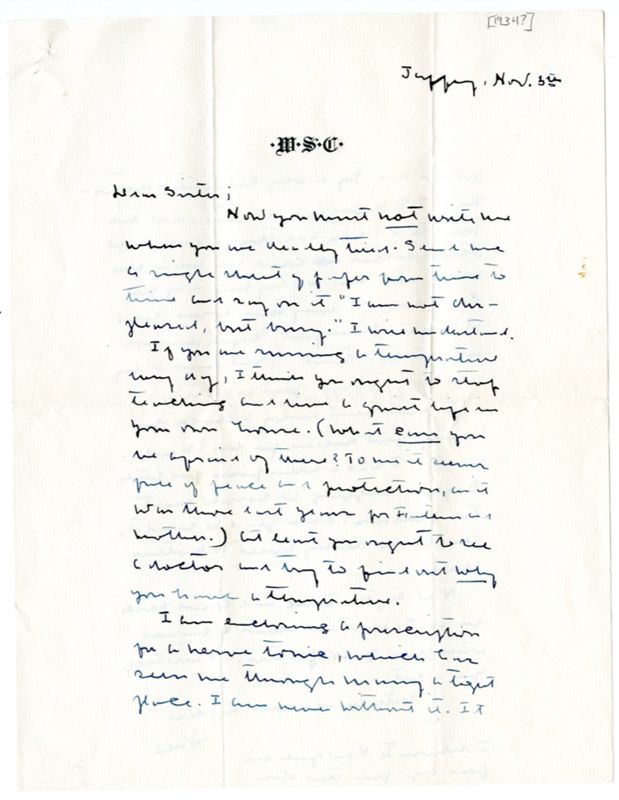 [1934?]
Jaffrey, Nov. 5th
·W·S·C·
Dear Sister;
Now you must not write me
when you are deadly tired. Send me
a single sheet of paper from time to
time and say on it "I am not dis-
pleased, but busy." I will understand.
If you are running a temperature
every day, I think you ought to stop
teaching and live a quiet life in
your own house. (What can you
be afraid of there? To me it seems
full of peace and protection, as it
was those last years for Father and
mother.) At least you ought to see
a doctor and try to find out why
you have a temperature.
I am enclosing a prescription
for a nerve tonic, which has
seen me through many a tight
place. I am never without it. It